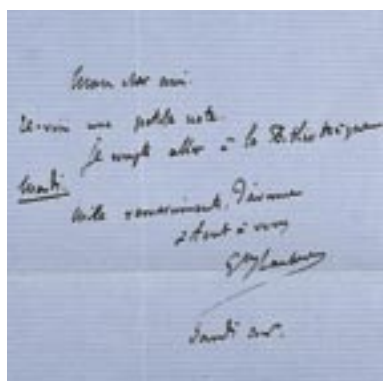 mon cher ami.
ci-join une petite note.
Je compte aller à la Bibliothèque
mardi.
mille remerciments d'avance
& tout à vous
Gve Flaubert
Samedi soir.